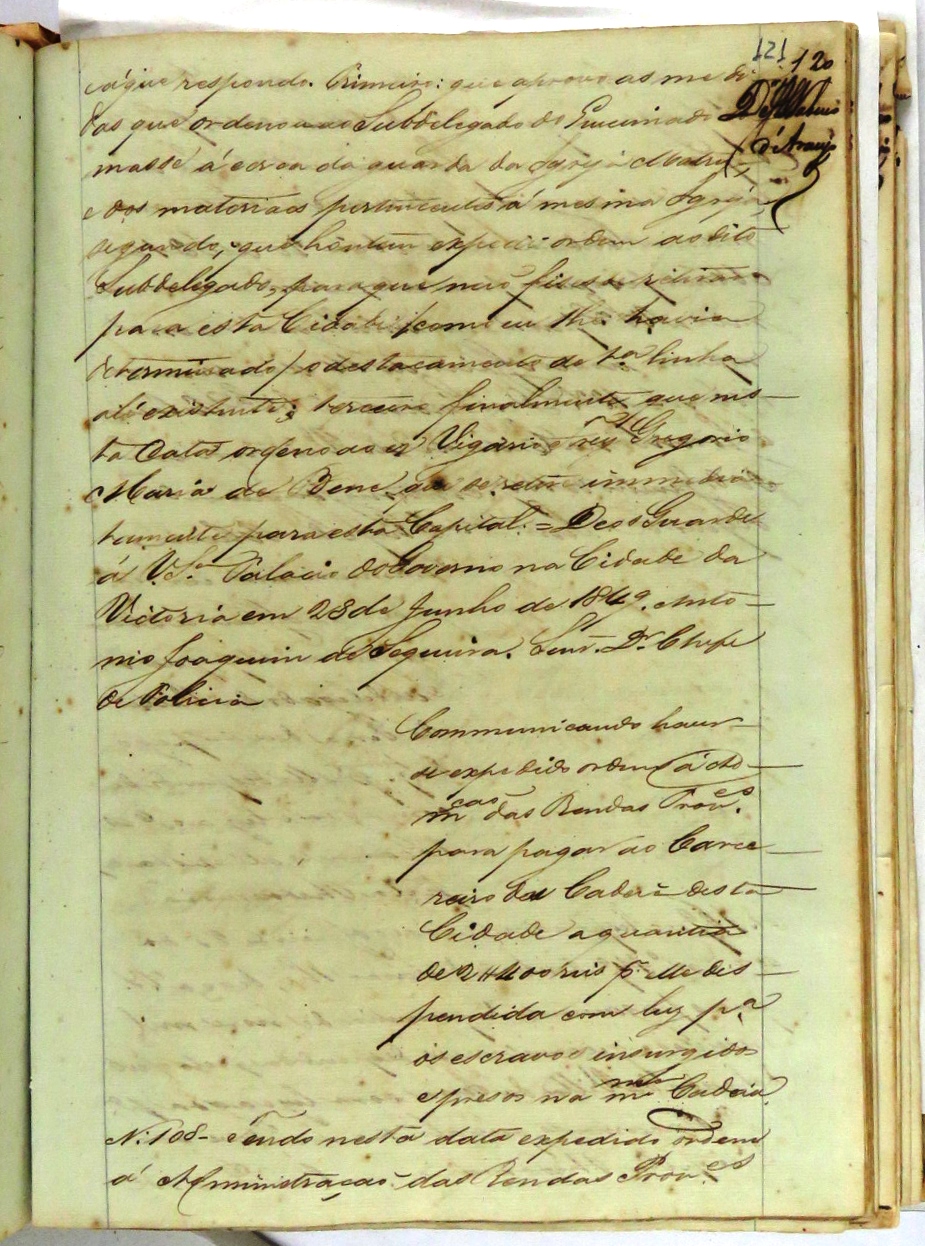 121 120
D'Araujo
á que respondo. Primeiro: que aprovo as medi-
das que ordenou ao Subdelegado do Queimado to-
masse á cerca da guarda da Igreja Matriz,
e dos materiaes pertencentes á mesma Igreja,
segundo, que hontem expedi ordem ao dito
Subdelegado, para que não fizesse retirar
para esta Cidade (como eu lhe havia
determinado) o destacamento de 1.ª linha
ali existente; terceiro finalmente que nes-
ta data ordeno ao Vigario Frei Gregorio
Maria de Bene que se retire immedia-
tamente para esta Capital. = Deos Guarde
á V. S.ª Palacio do Governo na Cidade da
Victoria em 28 de Junho de 1849. Anto-
nio Joaquim de Sequeira. Senr. Dr. Chefe
de Policia
Communicando haver-
se expedido ordem á Ad-
m.cão das Rendas Prov.es
para pagar ao Carce-
reiro da Cadeia desta
Cidade a quantia
de 2#400 reis p. elle des-
pendida com luz p.ª
os escravos insurgidos
e presos na m.ma Cadeia.
N.º 108 - Tendo nesta data expedido ordem
á Administração das Rendas Prov.es